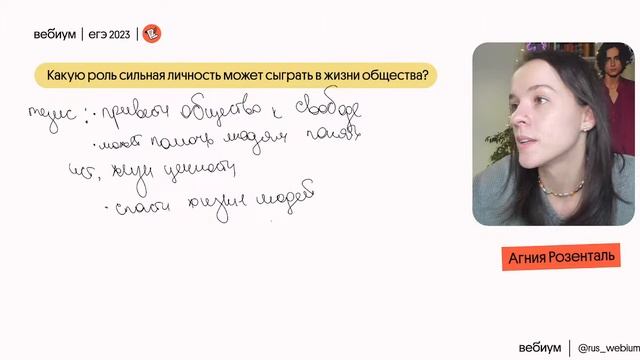 вебиум | егэ 2023 |
Какую роль сильная личность может сыграть в жизни общества?
тезис: · привести общество к свободе
· может помочь людям понять
ист. жизн ценности
· спасти жизни людей
Агния Розенталь
вебиум | @rus_webium